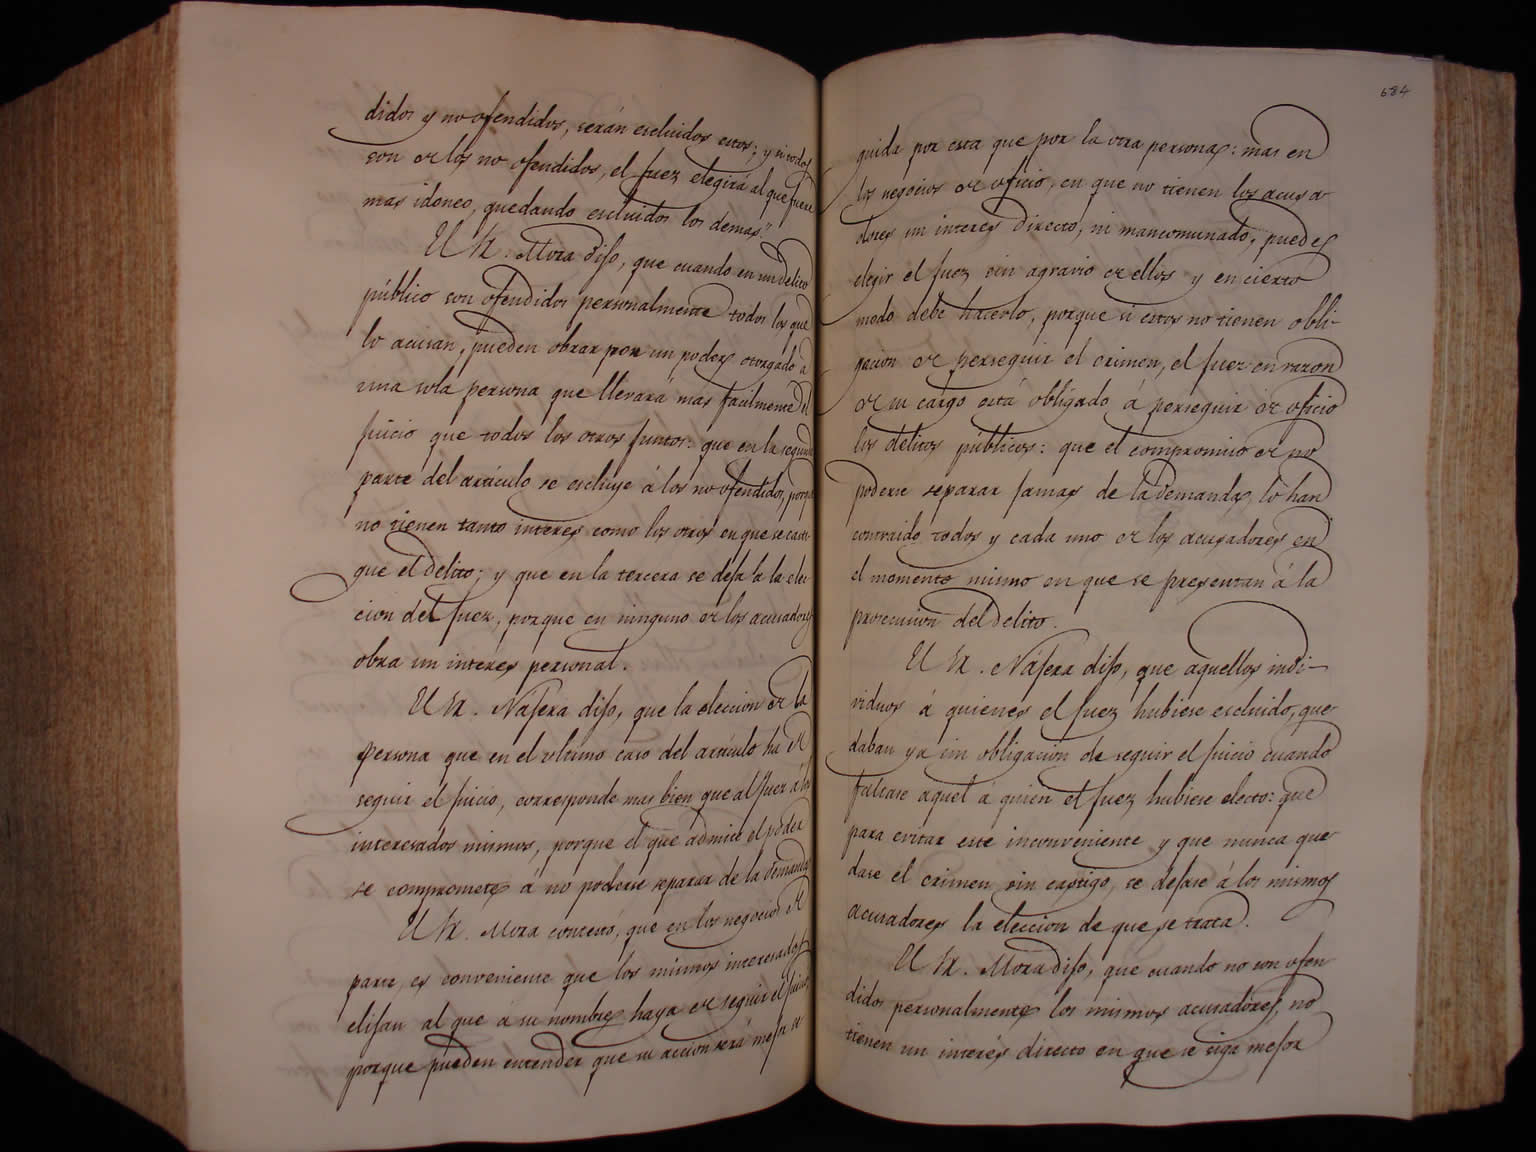 didos y no ofendidos, serán escluidos estos; y si todos
son de los no ofendidos, el juez elegirá al que fuere
mas idoneo, quedando escluidos los demas."
El Sr. Mora dijo, que cuando en un delito
público son ofendidos personalmente todos los que
lo acusan, pueden obrar por un poder otorgado á
una sola persona que llevará mas facilmente el
juicio que todos los otros juntos: que en la segunda
parte del artículo se escluye á los no ofendidos, porque
no tienen tanto interes como los otros en que se casti-
gue el delito; y que en la tercera se deja la la elec-
cion del juez, porque en ninguno de los acusadores
obra un interes personal.
El Sr. Najera dijo, que la eleccion de la
persona que en el ultimo caso del artículo ha de
seguir el juicio, corresponde mas bien que al juez á los
interesados mismos, porque el que admite el poder
se compromete á no poderse separar de la demanda
El Sr. Mora contestó, que en los negocios de
parte, es conveniente que los mismos interesados
elijan al que á su nombre haya de seguir el juicio,
porque pueden entender que su accion será mejor se
684
guida por esta que por la otra persona: mas en
los negocios de oficio, en que no tienen los acusa
dores un interes directo, ni mancomunado, puede
elegir el juez sin agravio de ellos y en cierto
modo debe hacerlo, porque si estos no tienen obli-
gacion de perseguir el crimen, el juez en razon
de su cargo está obligado á perseguir de oficio
los delitos públicos: que el compromiso de no
poderse separar jamas de la demanda, lo han
contraido todos y cada uno de los acusadores en
el momento mismo en que se presentan á la
prosecusion del delito.
El Sr. Nájera dijo, que aquellos indi-
viduos á quienes el juez hubiese escluido, que-
daban ya sin obligacion de seguir el juicio cuando
faltase aquel á quien el juez hubiese electo: que
para evitar este inconveniente y que nunca que-
dase el crimen sin castigo, se dejase á los mismos
acusadores la eleccion de que se trata.
El Sr. Mora dijo, que cuando no son ofen
didos personalmente los mismos acusadores, no
tienen un interés directo en que se siga mejor